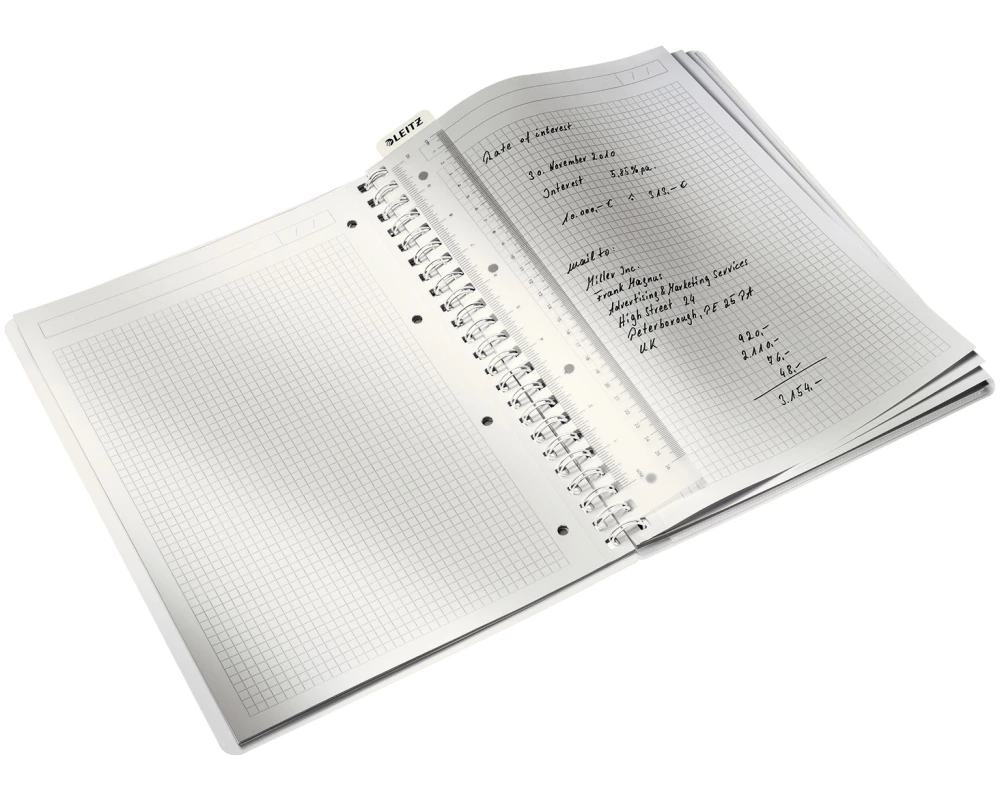 LEITZ
Rate of interest
30. November 2010
Interest 5,85% pa.
10.000,- € : 313,- €
mail to:
Miller Inc.
Frank Magnus
Advertising & Marketing Services
High Street 24
Peterborough, PE 25 7A
UK
920,-
2.110,-
76,-
48,-
3.154,-